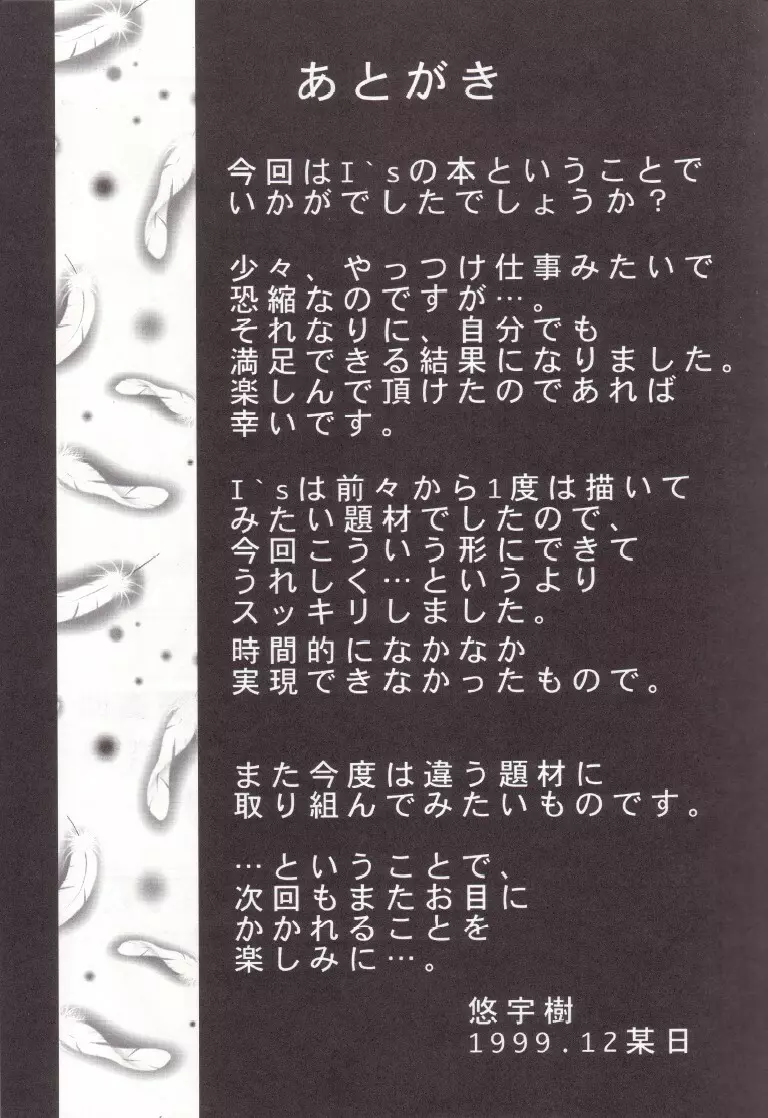 あとがき
今回はI`sの本ということで
いかがでしたでしょうか?
少々、やっつけ仕事みたいで
恐縮なのですが…。
それなりに、自分でも
満足できる結果になりました。
楽しんで頂けたのであれば
幸いです。
I`sは前々から1度は描いて
みたい題材でしたので、
今回こういう形にできて
うれしく…というより
スッキリしました。
時間的になかなか
実現できなかったもので。
また今度は違う題材に
取り組んでみたいものです。
…ということで、
次回もまたお目に
かかれることを
楽しみに…。
悠宇樹
1999.12某日